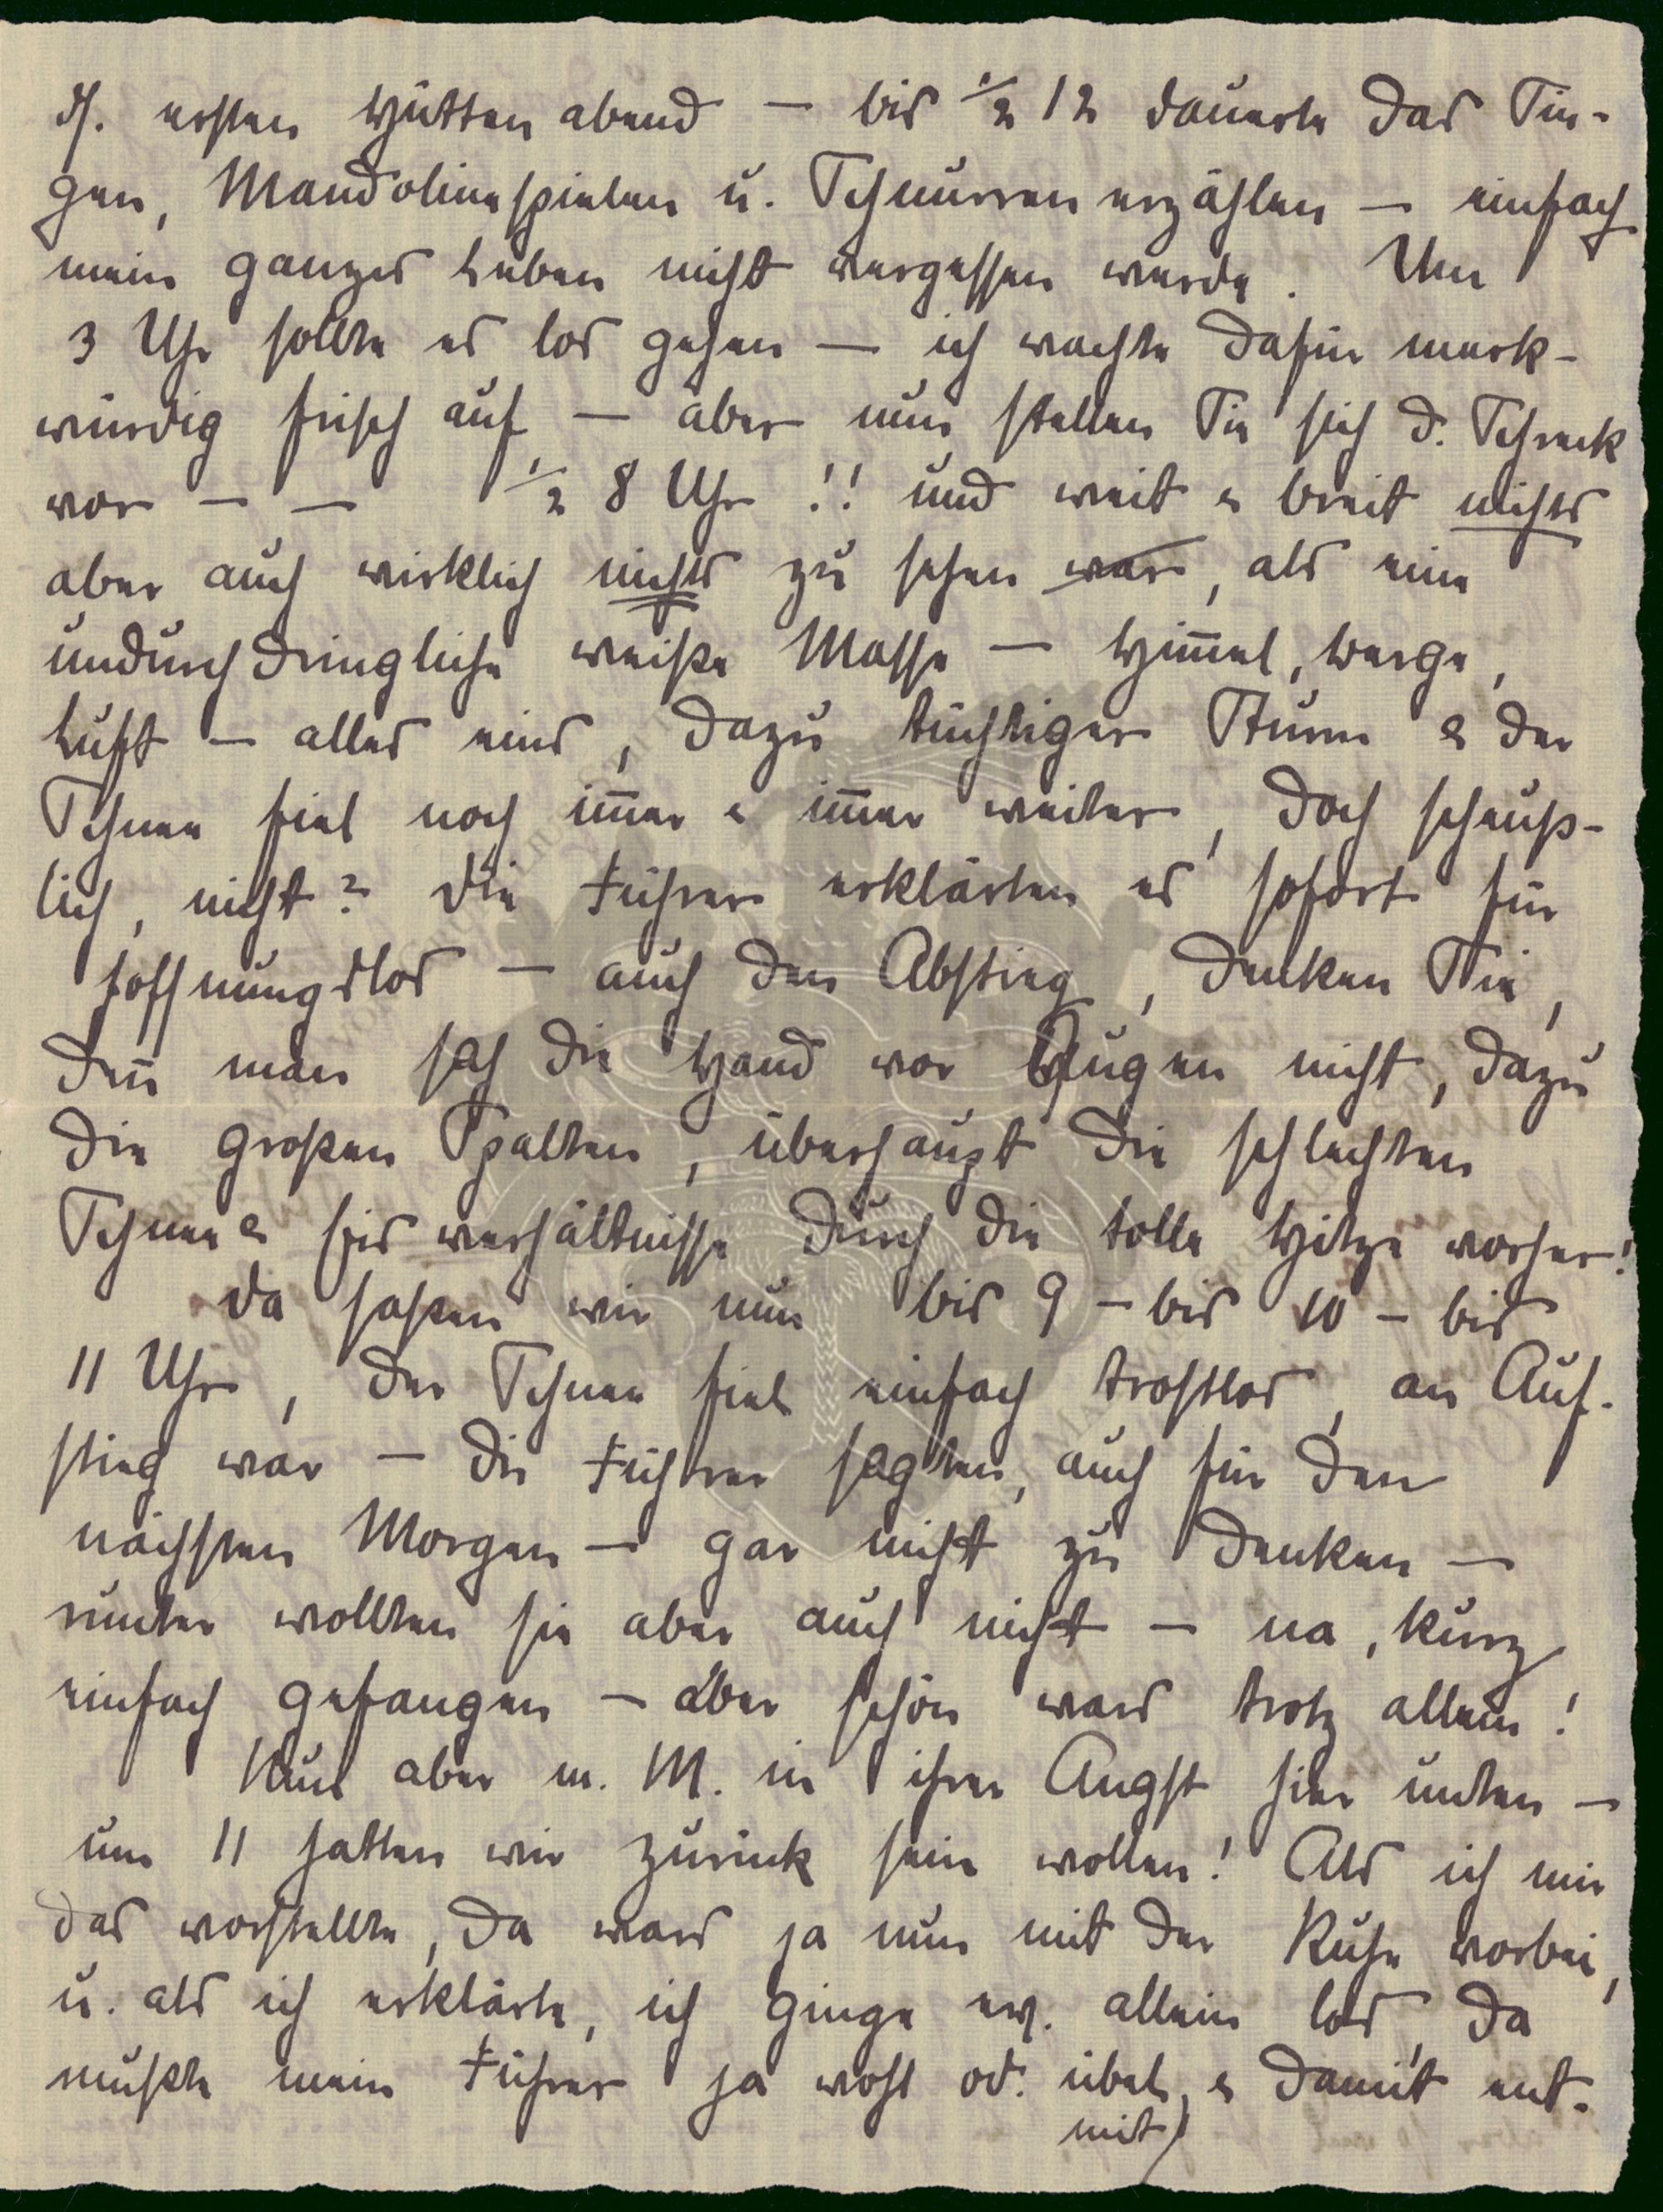 d. ersten Hüttenabend – bis ½ 12 dauerte das Sin-
gen, Mandolinespielen u. Schnurren erzählen – einfach
mein ganzes Leben nicht vergessen werde. Um
3 Uhr sollte es los gehen – ich wachte dafür merk-
würdig frisch auf – aber nun stellen Sie sich d. Schreck
vor – – ½ 8 Uhr !! und weit & breit nichts
aber auch wirklich nichts zu sehen war, als eine
undurchdringliche weiße Masse – Him̅el, Berge,
Luft – alles eins, dazu tüchtiger Sturm & der
Schnee fiel noch im̅er & im̅er weiter, doch scheuß-
lich, nicht? Die Führer erklärten es sofort für
hoffnungslos – auch den Abstieg, denken Sie,
den̅ man sah die Hand vor Augen nicht, dazu
die großen Spalten, überhaupt die schlechten
Schnee & Eisverhältnisse durch die tolle Hitze vorher!
Da saßen wir nun bis 9 – bis 10 – bis
11 Uhr, der Schnee fiel einfach trostlos, an Auf-
stieg war – die Führer sagten, auch für den
nächsten Morgen – gar nicht zu denken –
runter wollten sie aber auch nicht – na, kurz
einfach gefangen – aber schön wars trotz allem!
Nun aber m. M. in ihrer Angst hier unten –
um 11 hatten wir zurück sein wollen! Als ich mir
das vorstellte, da wars ja nun mit der Ruhe vorbei,
u. als ich erklärte, ich ginge ev. allein los, da
mußte mein Führer ja wohl od. übel & damit ent-
mit)